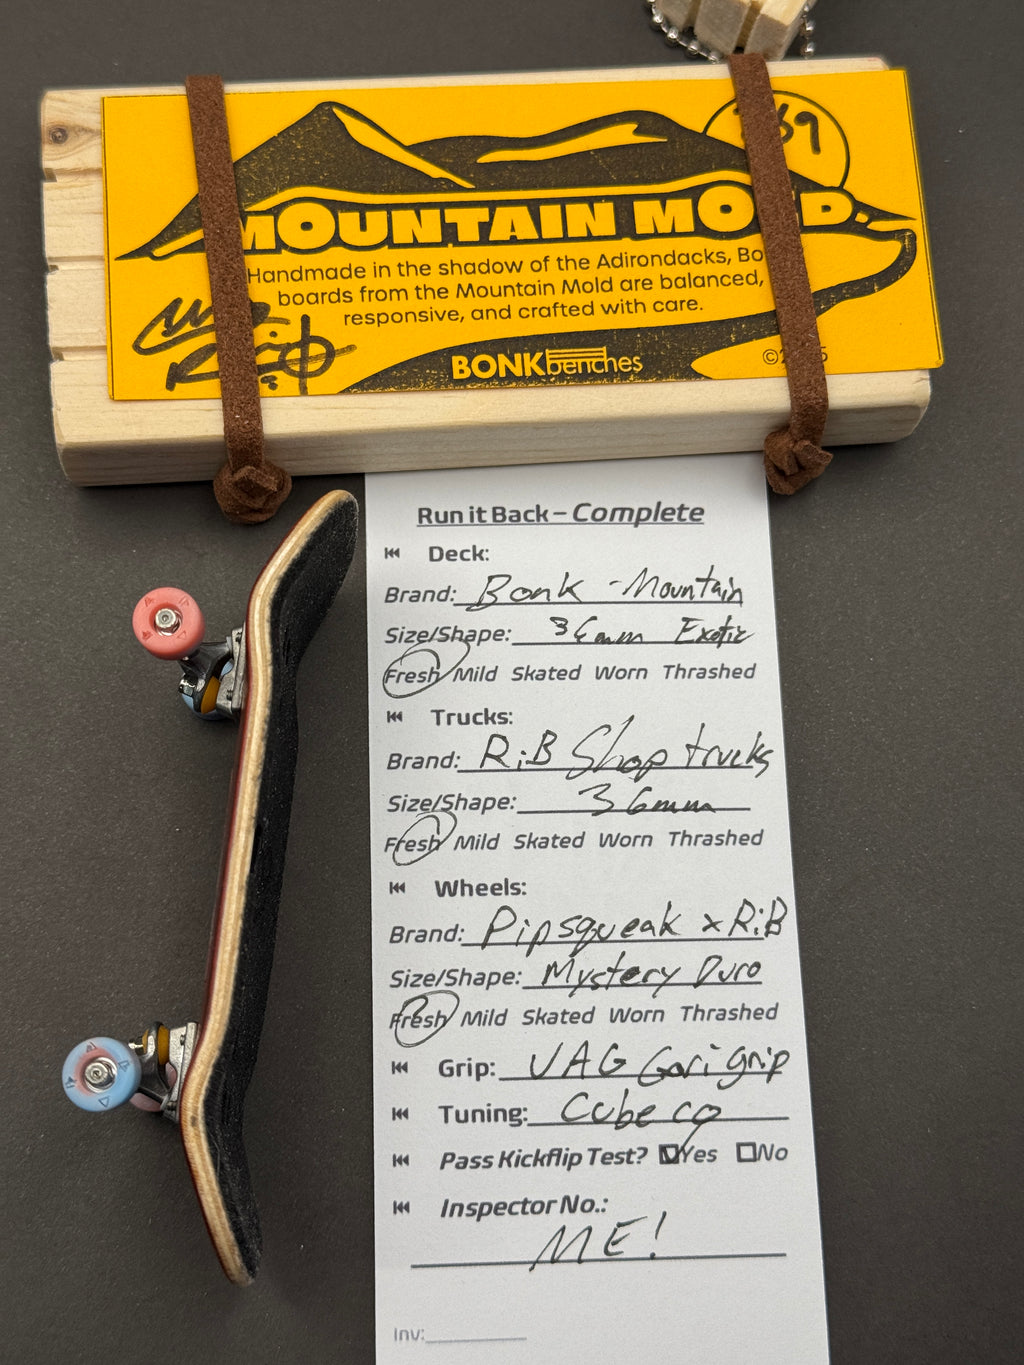 MOUNTAIN MOLD
Handmade in the shadow of the Adirondacks, Bo
boards from the Mountain Mold are balanced,
responsive, and crafted with care.
BONK benches
©
Run it Back – Complete
Deck:
Brand: Bonk - Mountain
Size/Shape: 36mm Exotic
Fresh Mild Skated Worn Thrashed
Trucks:
Brand: RiB Shop trucks
Size/Shape: 36mm
Fresh Mild Skated Worn Thrashed
Wheels:
Brand: Pipsqueak x RiB
Size/Shape: Mystery Duro
Fresh Mild Skated Worn Thrashed
Grip: VAG Gori grip
Tuning: Cube co
Pass Kickflip Test? Yes No
Inspector No.:
ME!
Inv: